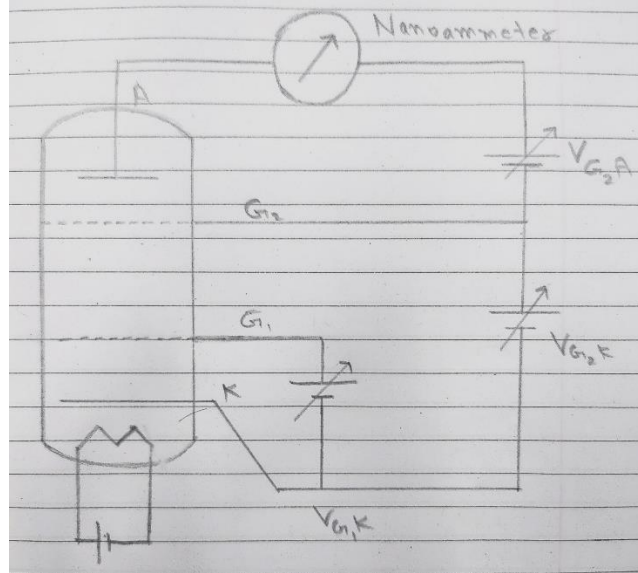 Nanoammeter
A
V_{G_2 A}
G_2
G_1
V_{G_2 K}
K
V_{G_1 K}